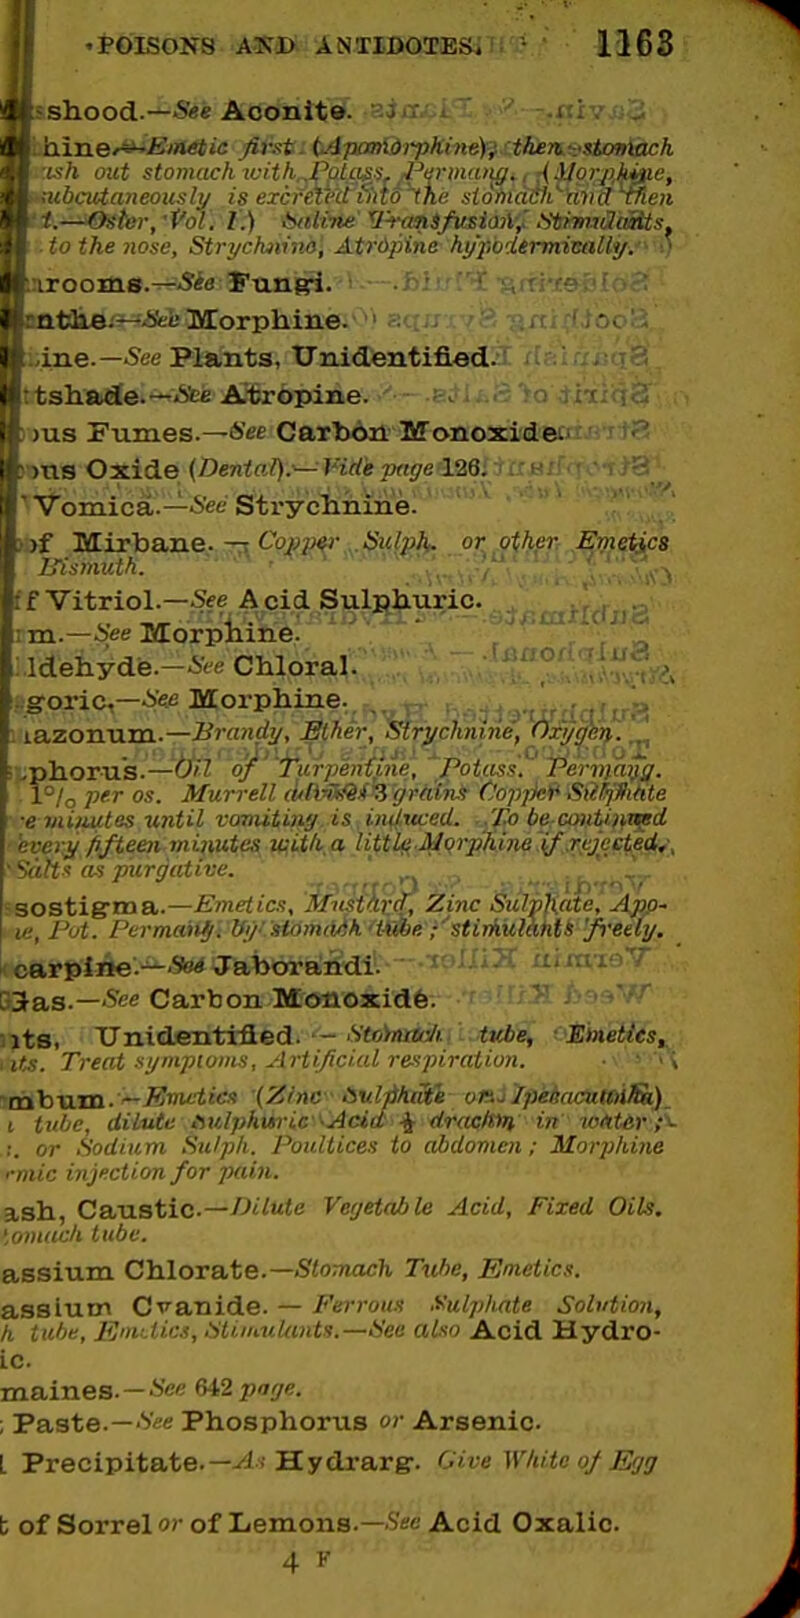 •POISONS AND ANTIDOTES. 1163
shood.—See Aconite.
hine.—Emetic first (Apomorphine), then stomach
ash out stomach with Potass. Permang. (Morphine,
subcutaneously is excreted into the stomach and then
t.—Osler, Vol. I.) Saline Transfusion, Stimulants,
to the nose, Strychnine, Atropine hypodermically.
irooms.—See Fungi.
nthe.—See Morphine.
ine.—See Plants, Unidentified.
tshade.—See Atropine.
ous Fumes.—See Carbon Monoxide.
ous Oxide (Dental).—Vide page 126.
Vomica.—See Strychnine.
of Mirbane. — Copper Sulph. or other Emetics
Bismuth.
f Vitriol.—See Acid Sulphuric.
m.—See Morphine.
ldehyde.—See Chloral.
goric.—See Morphine.
iazonum.—Brandy, Ether, Strychnine, Oxygen.
phorus.—Oil of Turpentine, Potass. Permang.
1°/o per os. Murrell advises 3 grains Copper Sulphate
e minutes until vomiting is induced. To be continued
every fifteen minutes with a little Morphine if rejected.
Salts as purgative.
sostigma.—Emetics, Mustard, Zinc Sulphate, Apo-
ie, Pot. Permang. by stomach tube; stimulants freely.
carpine.—See Jaborandi.
Gas.—See Carbon Monoxide.
nts, Unidentified. — Stomach tube, Emetics,
its. Treat symptoms, Artificial respiration.
mbum.—Emetics (Zinc Sulphate or Ipecacuanha)
i tube, dilute Sulphuric Acid ½ drachm in water;
:. or Sodium Sulph. Poultices to abdomen; Morphine
rmic injection for pain.
ash, Caustic.—Dilute Vegetable Acid, Fixed Oils.
tomach tube.
assium Chlorate.—Stomach Tube, Emetics.
assium Cyanide. — Ferrous Sulphate Solution,
h tube, Emetics, Stimulants.—See also Acid Hydro-
ic.
maines.—See 642 page.
; Paste.—See Phosphorus or Arsenic.
l Precipitate.—As Hydrarg. Give White of Egg
t of Sorrel or of Lemons.—See Acid Oxalic.
4 F